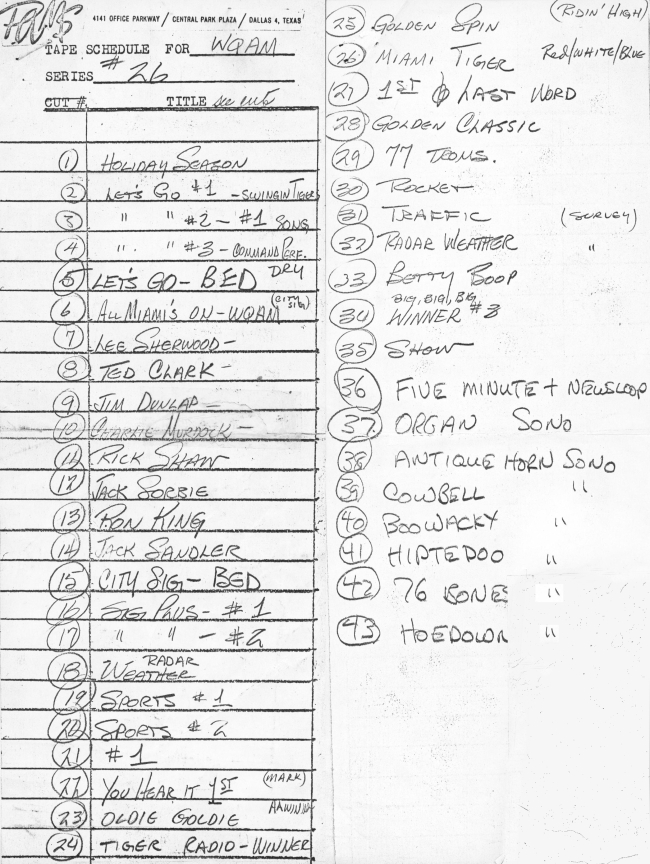 PAMS
4141 OFFICE PARKWAY / CENTRAL PARK PLAZA / DALLAS 4, TEXAS
TAPE SCHEDULE FOR WQAM
SERIES # 26
CUT # TITLE see cuts
1 HOLIDAY SEASON
2 LET'S GO #1 - SWINGIN TIGERS
3 " " #2 - #1 SONG
4 " " #3 - COMMAND PERF.
5 LET'S GO - BED DRY
6 ALL MIAMI'S ON - WQAM (CITY SIG)
7 LEE SHERWOOD -
8 TED CLARK -
9 JIM DUNLAP -
10 CHARLIE MURDOCK -
11 RICK SHAW
12 JACK SORBIE
13 RON KING
14 JACK SANDLER
15 CITY SIG - BED
16 SIG PLUS - #1
17 " " - #2
18 RADAR WEATHER
19 SPORTS #1
20 SPORTS #2
21 #1
22 YOU HEAR IT 1ST (MARK)
23 OLDIE GOLDIE
24 TIGER RADIO - WINNER
25 GOLDEN SPIN (RIDIN' HIGH)
26 MIAMI TIGER Red/WHITE/BLUE
27 1ST & LAST WORD
28 GOLDEN CLASSIC
29 77 TOONS.
30 ROCKET
31 TRAFFIC (SURVEY)
32 RADAR WEATHER "
33 BETTY BOOP
34 BIG, BIG, BIG WINNER #3
35 SHOW
36 FIVE MINUTE + NEWSLOOP
37 ORGAN SONO
38 ANTIQUE HORN SONO
39 COWBELL "
40 BOOWACKY "
41 HIPTEDOO "
42 76 BONES "
43 HOEDOWN "